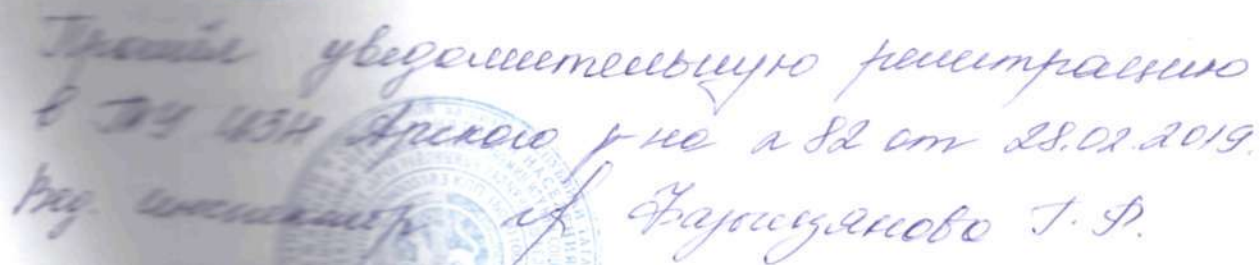 Прошёл уведомительную регистрацию
в ГКУ ЦЗН Арского р-на N 82 от 28.02.2019.
Вед. инспектор Г. Ф.